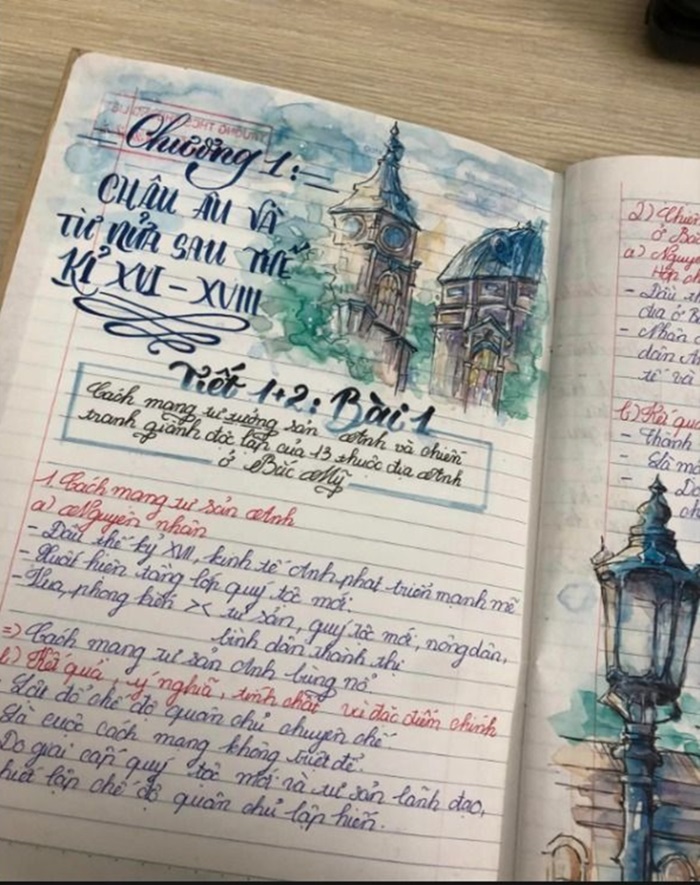 Chương 1:
CHÂU ÂU VÀ
TỪ NỬA SAU THẾ
KỈ XVI - XVIII
Tiết 1+2: Bài 1
Cách mạng tư tướng sản Anh và chiến
tranh giành độc lập của 13 thuộc địa Anh
ở Bắc Mỹ
1. Cách mạng tư sản Anh
a) Nguyên nhân
- Đầu thế kỷ XVII, kinh tế Anh phát triển mạnh mẽ
- Xuất hiện tầng lớp quý tộc mới.
- Vua, phong kiến >< tư sản, quý tộc mới, nông dân,
bình dân thành thị
=> Cách mạng tư sản Anh bùng nổ
b) Kết quả, ý nghĩa, tính chất và đặc điểm chính
Lật đổ chế độ quân chủ chuyên chế
Là cuộc cách mạng không triệt để.
Do giai cấp quý tộc mới và tư sản lãnh đạo,
thiết lập chế độ quân chủ lập hiến.
2) Chiến
ở Bắc
a) Nguyê
- Đầu t
địa ở B
- Nhân d
dân A
tế và
b) Kết quả
- Thành
- Là mộ
- Do